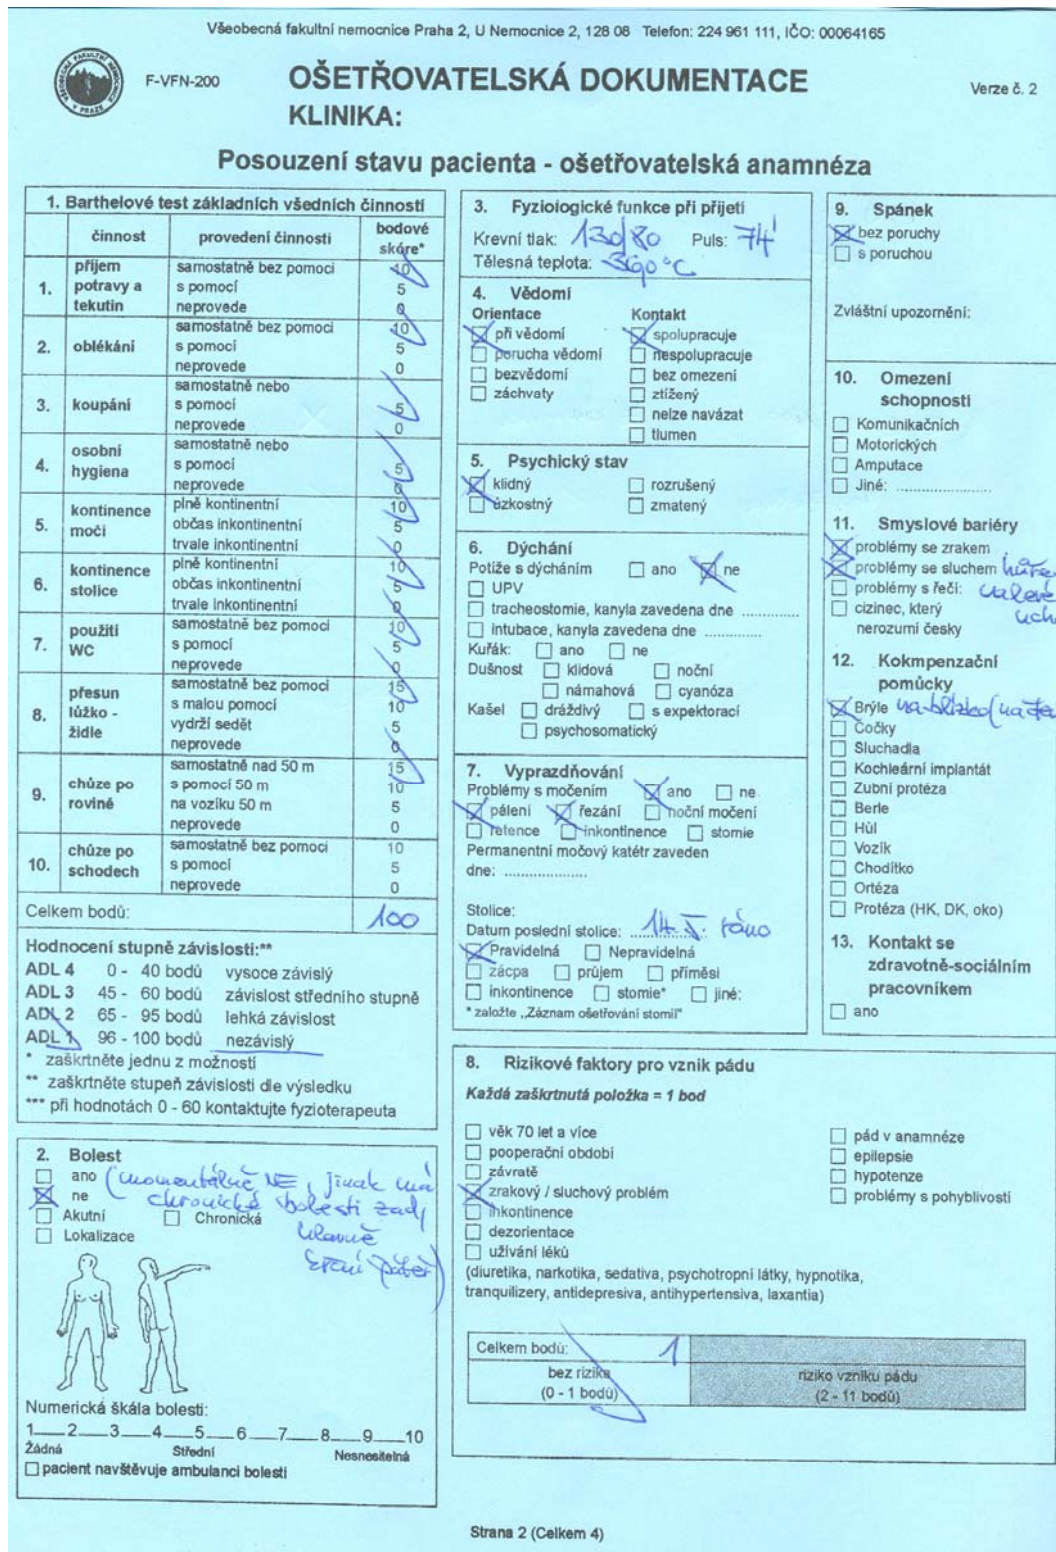 Všeobecná fakultní nemocnice Praha 2, U Nemocnice 2, 128 08 Telefon: 224 961 111, IČO: 00064165
VŠEOBECNÁ FAKULTNÍ NEMOCNICE V PRAZE
F-VFN-200
OŠETŘOVATELSKÁ DOKUMENTACE
Verze č. 2
KLINIKA:
Posouzení stavu pacienta - ošetřovatelská anamnéza
1. Barthelové test základních všedních činností
činnost provedení činnosti bodové skóre*
1. příjem potravy a tekutin
samostatně bez pomoci 10
s pomocí 5
neprovede 0
2. oblékání
samostatně bez pomoci 10
s pomocí 5
neprovede 0
3. koupání
samostatně nebo
s pomocí 5
neprovede 0
4. osobní hygiena
samostatně nebo
s pomocí 5
neprovede 0
5. kontinence moči
plně kontinentní 10
občas inkontinentní 5
trvale inkontinentní 0
6. kontinence stolice
plně kontinentní 10
občas inkontinentní 5
trvale inkontinentní 0
7. použití WC
samostatně bez pomoci 10
s pomocí 5
neprovede 0
8. přesun lůžko - židle
samostatně bez pomoci 15
s malou pomocí 10
vydrží sedět 5
neprovede 0
9. chůze po rovině
samostatně nad 50 m 15
s pomocí 50 m 10
na vozíku 50 m 5
neprovede 0
10. chůze po schodech
samostatně bez pomoci 10
s pomocí 5
neprovede 0
Celkem bodů: 100
Hodnocení stupně závislosti:**
ADL 4 0 - 40 bodů vysoce závislý
ADL 3 45 - 60 bodů závislost středního stupně
ADL 2 65 - 95 bodů lehká závislost
ADL 1 96 - 100 bodů nezávislý
* zaškrtněte jednu z možností
** zaškrtněte stupeň závislosti dle výsledku
*** při hodnotách 0 - 60 kontaktujte fyzioterapeuta
2. Bolest
ano (momentálně NE, jinak má
ne chronické bolesti zad,
Akutní Chronická hlavně
Lokalizace krční páteř)
Numerická škála bolesti:
1 2 3 4 5 6 7 8 9 10
Žádná Střední Nesnesitelná
pacient navštěvuje ambulanci bolesti
3. Fyziologické funkce při přijetí
Krevní tlak: 130/80 Puls: 74'
Tělesná teplota: 36,0 °C
4. Vědomí
Orientace Kontakt
při vědomí spolupracuje
porucha vědomí nespolupracuje
bezvědomí bez omezení
záchvaty ztížený
nelze navázat
tlumen
5. Psychický stav
klidný rozrušený
úzkostný zmatený
6. Dýchání
Potíže s dýcháním ano ne
UPV
tracheostomie, kanyla zavedena dne .............
intubace, kanyla zavedena dne .............
Kuřák: ano ne
Dušnost klidová noční
námahová cyanóza
Kašel dráždivý s expektorací
psychosomatický
7. Vyprazdňování
Problémy s močením ano ne
pálení řezání noční močení
retence inkontinence stomie
Permanentní močový katétr zaveden
dne: ....................
Stolice:
Datum poslední stolice: 14. V. ráno
Pravidelná Nepravidelná
zácpa průjem příměsi
inkontinence stomie* jiné:
* založte „Záznam ošetřování stomií"
8. Rizikové faktory pro vznik pádu
Každá zaškrtnutá položka = 1 bod
věk 70 let a více pád v anamnéze
pooperační období epilepsie
závratě hypotenze
zrakový / sluchový problém problémy s pohyblivostí
inkontinence
dezorientace
užívání léků
(diuretika, narkotika, sedativa, psychotropní látky, hypnotika,
tranquilizery, antidepresiva, antihypertensiva, laxantia)
Celkem bodů: 1
bez rizika riziko vzniku pádu
(0 - 1 bodů) (2 - 11 bodů)
9. Spánek
bez poruchy
s poruchou
Zvláštní upozornění:
10. Omezení schopnosti
Komunikačních
Motorických
Amputace
Jiné: ....................
11. Smyslové bariéry
problémy se zrakem
problémy se sluchem hůře
problémy s řečí: na levé
cizinec, který ucho
nerozumí česky
12. Kokmpenzační pomůcky
Brýle na blízko
Čočky
Sluchadla
Kochleární implantát
Zubní protéza
Berle
Hůl
Vozík
Chodítko
Ortéza
Protéza (HK, DK, oko)
13. Kontakt se zdravotně-sociálním pracovníkem
ano
Strana 2 (Celkem 4)